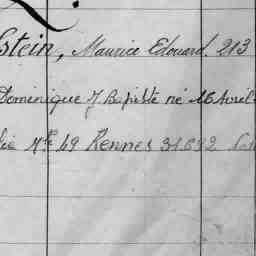 stein, Maurice Edouard. 213
Dominique J Bapiste né 16 Avril
49 Rennes 31692